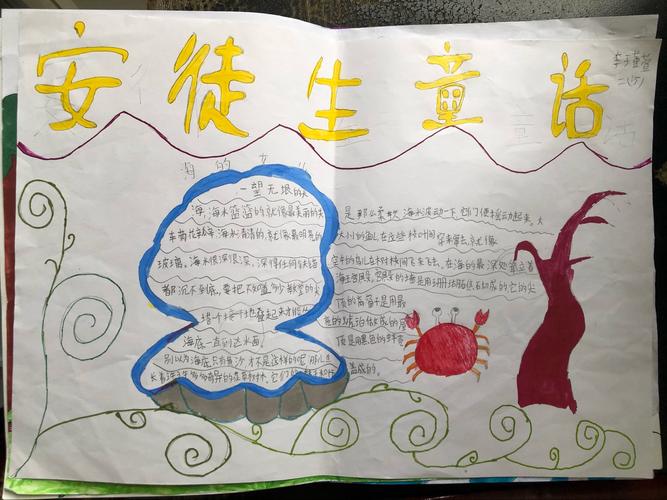 安徒生童话
李瑾萱
二(5)
海的女儿
一望无垠的大
海,海水蓝蓝的就像最美丽的矢
车菊花瓣海水清的就像最明亮的
玻璃。海水很深很深,深得任何铁锚
都沉不到底,要把不知道多少教堂的尖
塔一个接一个地叠起来才能从
海底一直到达水面。
别以为海底只有黄沙才不是这样的呢那儿生
长着许许多多奇异的花草树木,它们的
是那么柔软海水波动一下,它们便摇动起来,大
大小小的鱼儿在这些枝叶间穿来穿去,就像
空中的鸟儿在树枝间飞来飞去。在海的最深处矗立着
海王宫殿,宫殿的墙是用珊瑚石切成的,它的尖
顶的高窗十是用最
亮的琥珀做成的屋
顶是用黑色的蚌壳
盖成的。